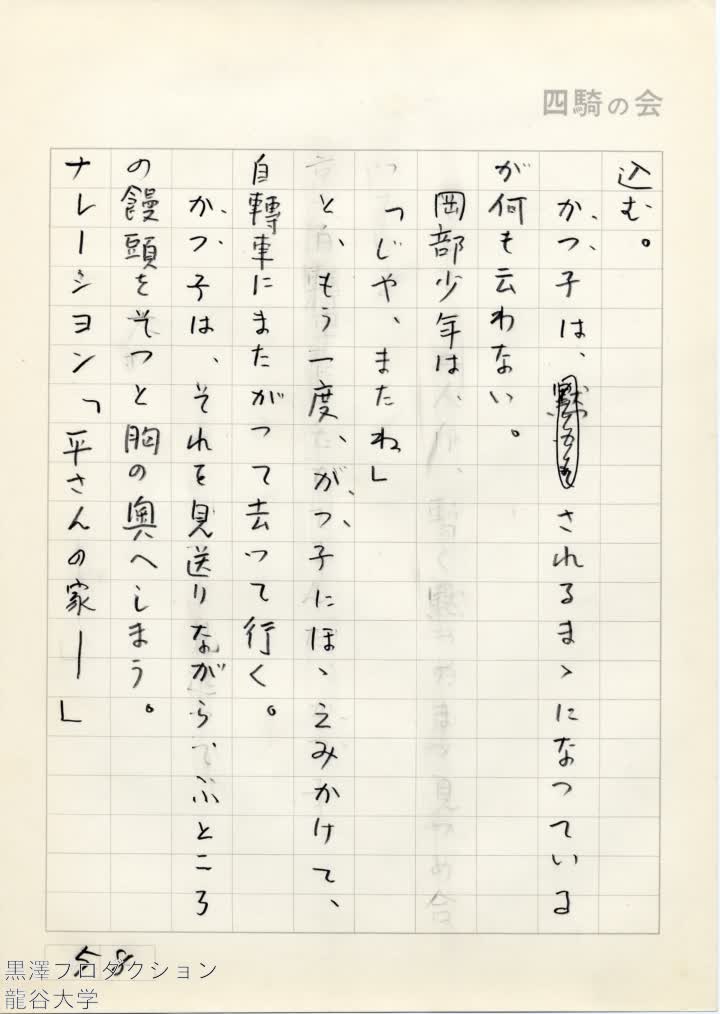 四騎の会
込む。
かつ子は、されるまゝになつている
が何も云わない。
岡部少年は、
「じや、またね」
と、もう一度、かつ子にほゝえみかけて、
自轉車にまたがつて去つて行く。
かつ子は、それを見送りながら、ふところ
の饅頭をそつと胸の奥へしまう。
ナレーシヨン「平さんの家―」
黒澤プロダクション
龍谷大学